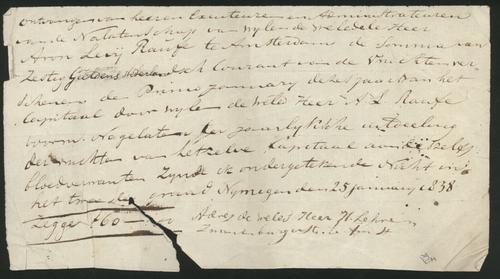 ontvangen van heeren Executeuren en Administrateuren
van de Nalatenschap van wijlen de weledele Heer
Aron Levy te Amsterdam de Somma van
Zestig Guldens Nederlandsch Courant van de Vruchten ver-
schenen de Primo January dezes jaars van het
Capitaal door wyle de weld Heer A. L.
bovens. Nagelate der jaarlyksche uitdeeling
der vruchten van hetzelve Kapitaal aan
bloedverwanten zynde ik ondergetekende Nicht in
het graad Nymegen den 25 january 1838
Zegge f60
Adres de weled Heer H.